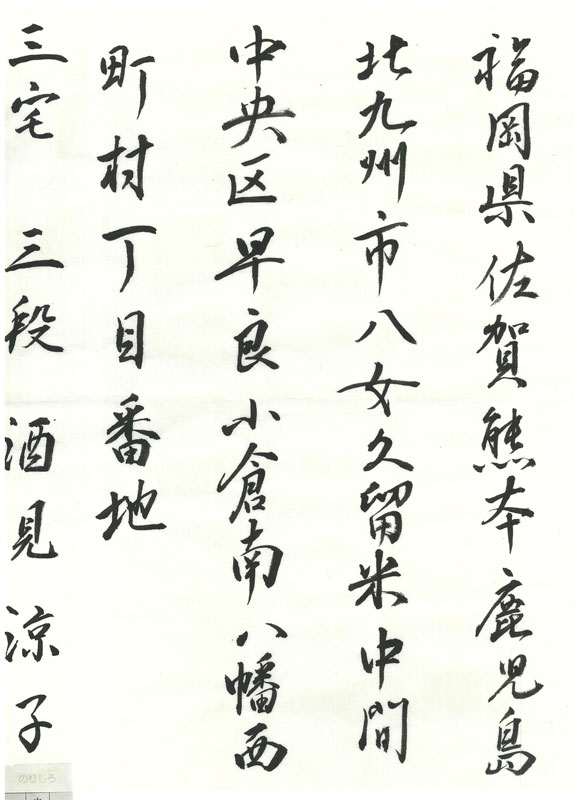 福岡県佐賀熊本鹿児島
北九州市八女久留米中間
中央区早良小倉南八幡西
町村丁目番地
三宅 三段 酒見涼子
のりしろ